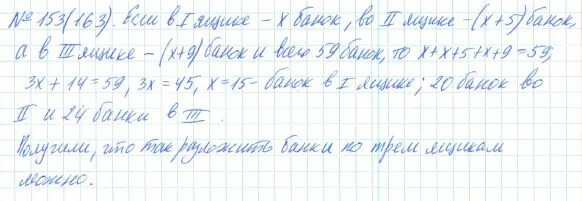 № 153(163). Если в I ящике – x банок, во II ящике – (x+5) банок,
а в III ящике – (x+9) банок и всего 59 банок, то x+x+5+x+9=59,
3x+14=59, 3x=45, x=15 – банок в I ящике; 20 банок во
II и 24 банки в III.
Получили, что так разложить банки по трем ящикам
можно.